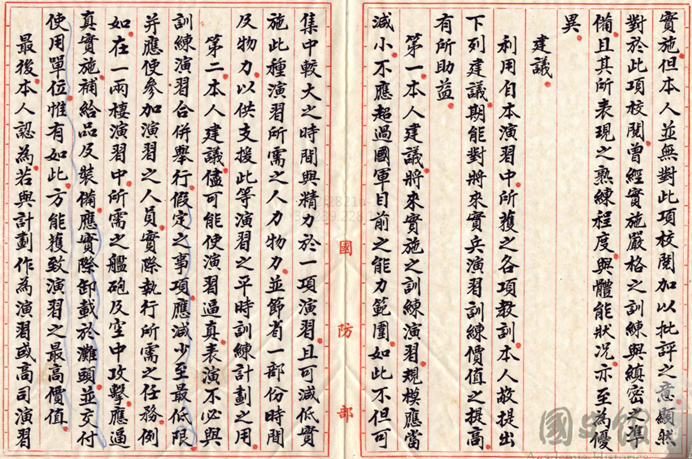 實施但本人並無對此項校閱加以批評之意顯然
對於此項校閱曾經實施嚴格之訓練與縝密之準
備且其所表現之熟練程度與體能狀況亦至為優
異
建議
利用自本演習中所獲之各項教訓本人敢提出
下列建議期能對將來實兵演習訓練價值之提高
有所助益
第一本人建議將來實施之訓練演習規模應當
減小不應超過國軍目前之能力範圍如此不但可
國防部
集中較大之時間與精力於一項演習且可減低實
施此種演習所需之人力物力並節省一部份時間
及物力以供支援此等演習之平時訓練計劃之用
第二本人建議儘可能使演習逼真表演不必與
訓練演習合併舉行假定之事項應減少至最低限
並應使參加演習之人員實際執行所需之任務例
如在一兩棲演習中所需之艦砲及空中攻擊應逼
真實施補給品及裝備應實際卸載於灘頭並交付
使用單位惟有如此方能獲致演習之最高價值
最後本人認為若與計劃作為演習或高司演習
國史館
Academia Historica